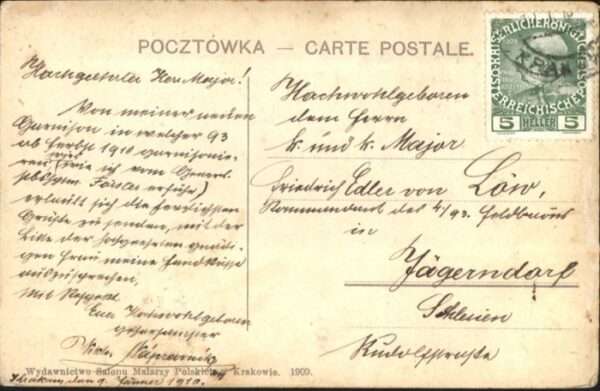 POCZTÓWKA — CARTE POSTALE.
KAISERLICHE KÖNIGLICHE
ÖSTERREICHISCHE POST
5 HELLER 5
KRAK
Hochgeehrter Herr Major!
Von meiner neuen
Garnison in welcher 93
ab Herbst 1910 garnisonie-
ren wie ich vom General
erlaubt sich die herzlichsten
Grüße zu senden, mit der
Bitte der
gen Frau meine Handküsse
auszusprechen.
Mit Respect
Euer Hochwohlgeboren
gehorsamster
Hochwohlgeboren
dem Herrn
k. und k. Major
Friedrich Edler von Löw,
Kommandant des 4/93. Feldbaons
in
Jägerndorf
Schlesien
Rudolfstraße
Wydawnictwo Salonu Malarzy Polskich w Krakowie. 1909.
Krakau den 9. Jänner 1910.